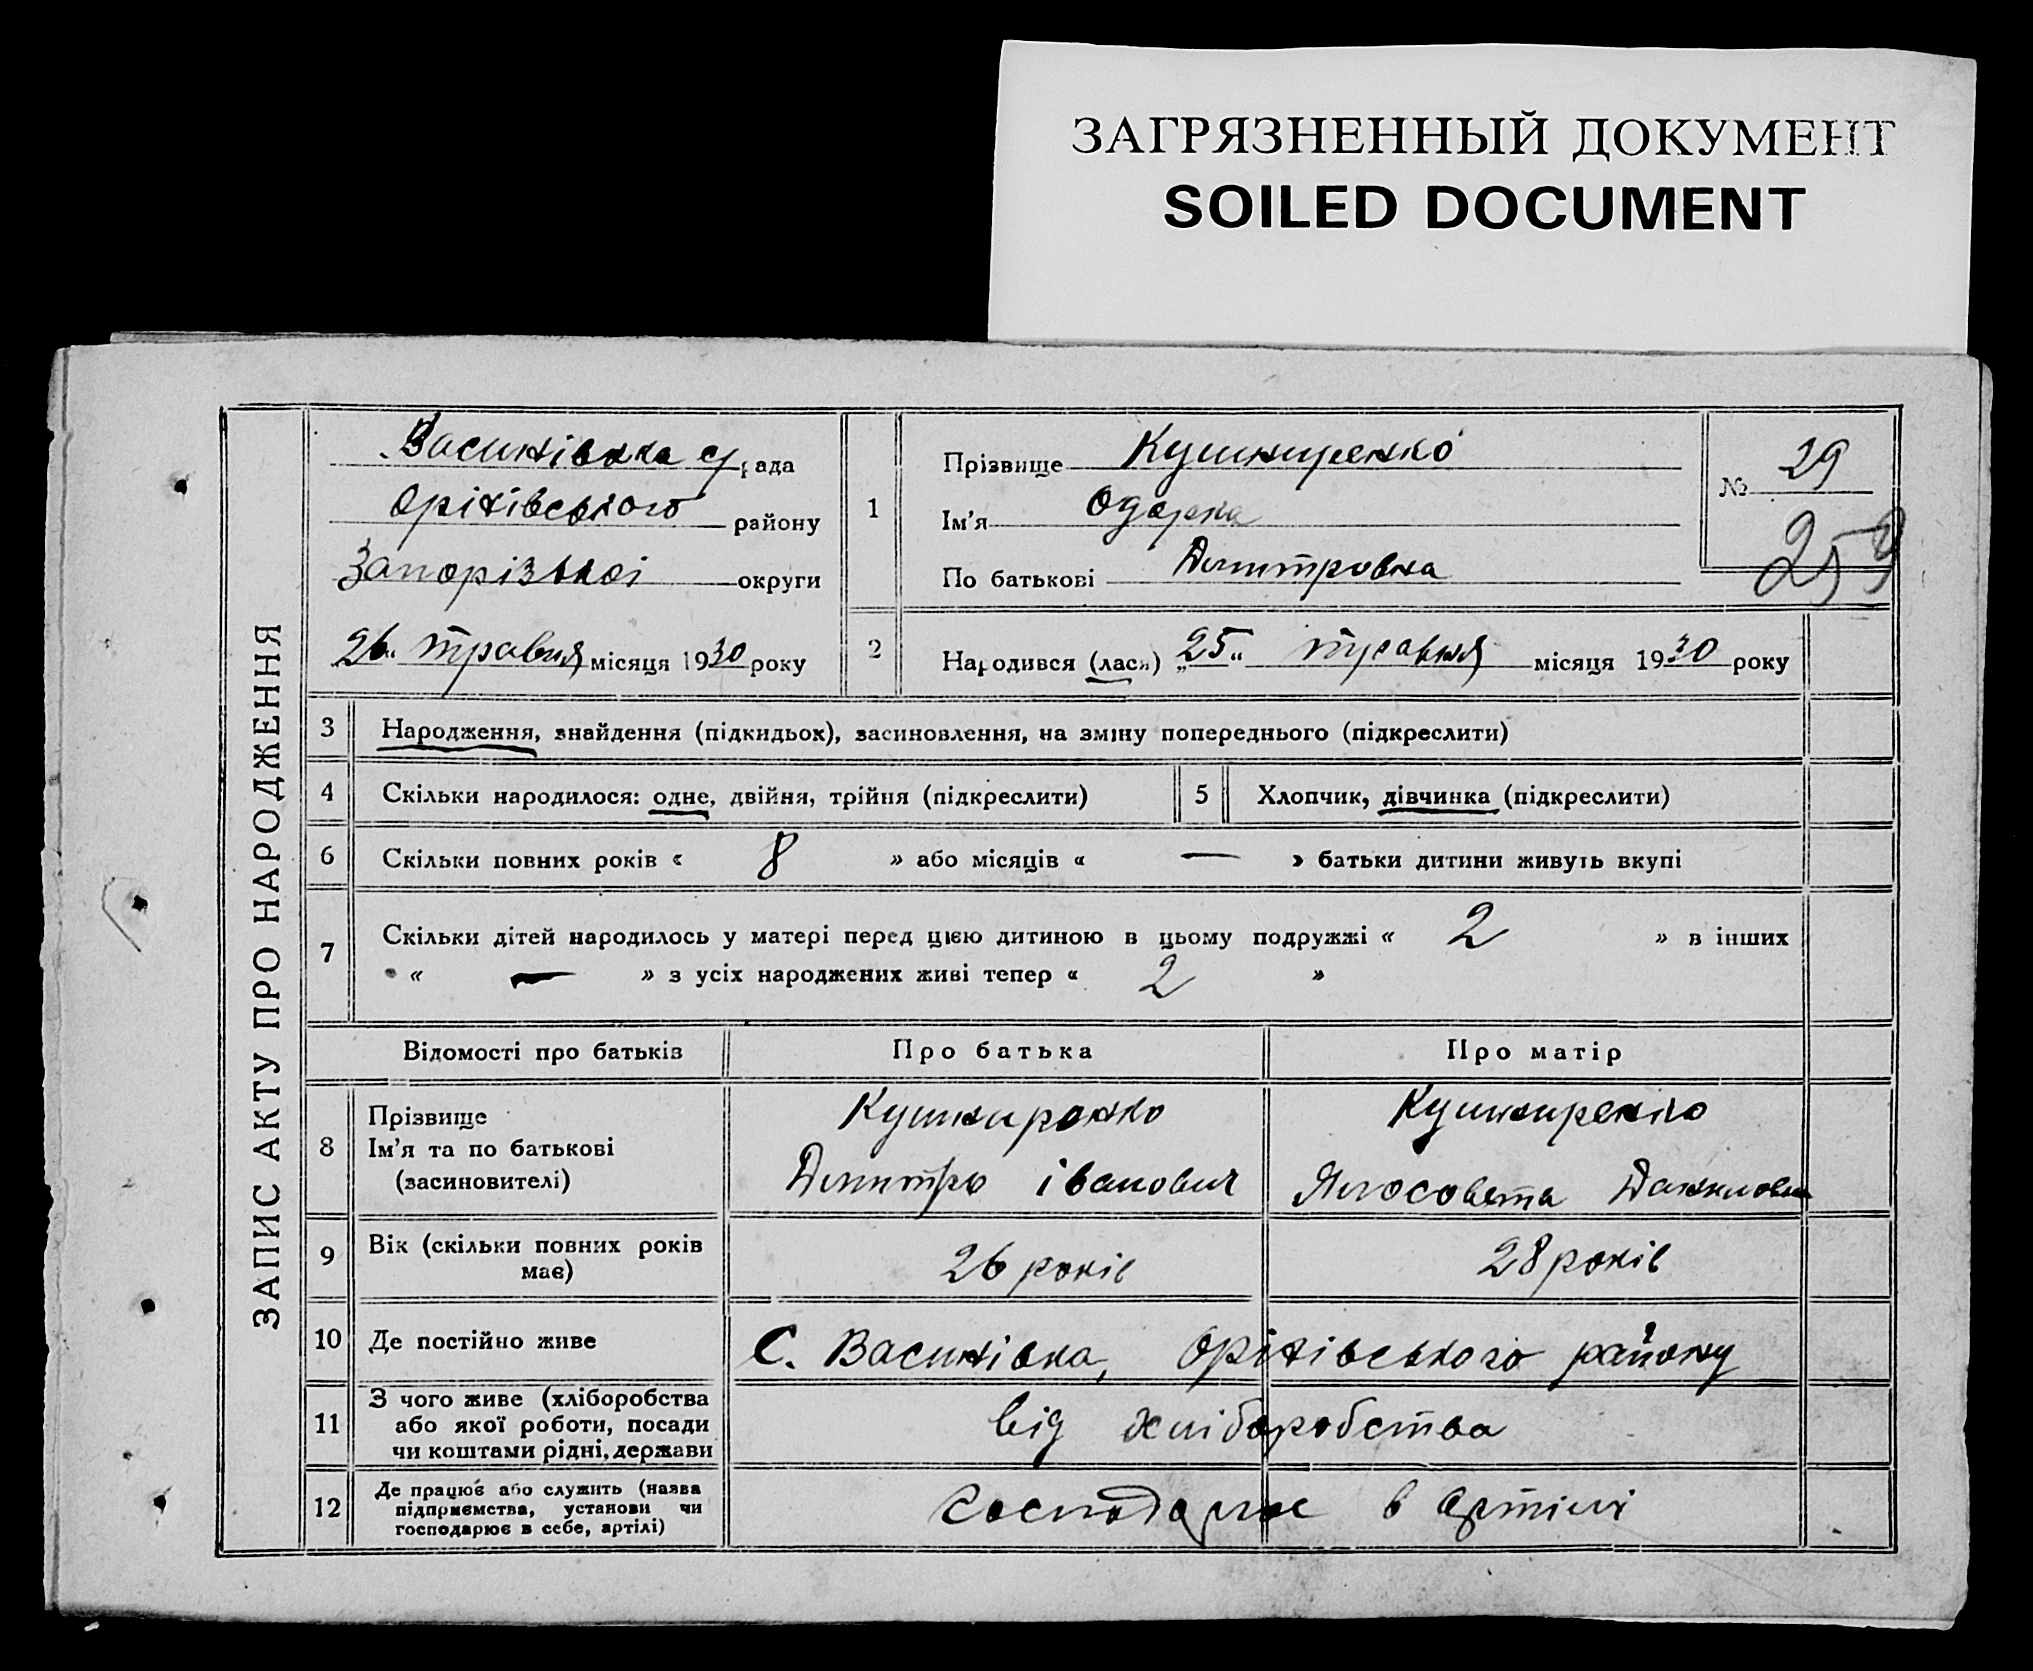 ЗАГРЯЗНЕННЫЙ ДОКУМЕНТ
SOILED DOCUMENT
ЗАПИС АКТУ ПРО НАРОДЖЕННЯ
Василівка с/рада
Оріхівського району
Запорізької округи
26 травня місяця 1930 року
1
Прізвище Кушниренко
Ім'я Одарка
По батькові Димитровна
№ 29
259
2 Народився (лася) „25“ травня місяця 1930 року
3 Народження, знайдення (підкидьох), засиновлення, на зміну попереднього (підкреслити)
4 Скільки народилося: одне, двійня, трійня (підкреслити) 5 Хлопчик, дівчинка (підкреслити)
6 Скільки повних років « 8 » або місяців « — » батьки дитини живуть вкупі
7 Скільки дітей народилось у матері перед цією дитиною в цьому подружжі « 2 » в інших
« — » з усіх народжених живі тепер « 2 »
Відомості про батьків Про батька Про матір
8
Прізвище Кушниренко Кушниренко
Ім'я та по батькові
(засиновителі) Димитро Іванович Даниловна
9 Вік (скільки повних років має) 26 років 28 років
10 Де постійно живе С. Василівка, Оріхівського району
11 З чого живе (хліборобства
або якої роботи, посади
чи коштами рідні, держави від хліборобства
12 Де працює або служить (назва
підприємства, установи чи
господарює в себе, артілі) господарює в артілі